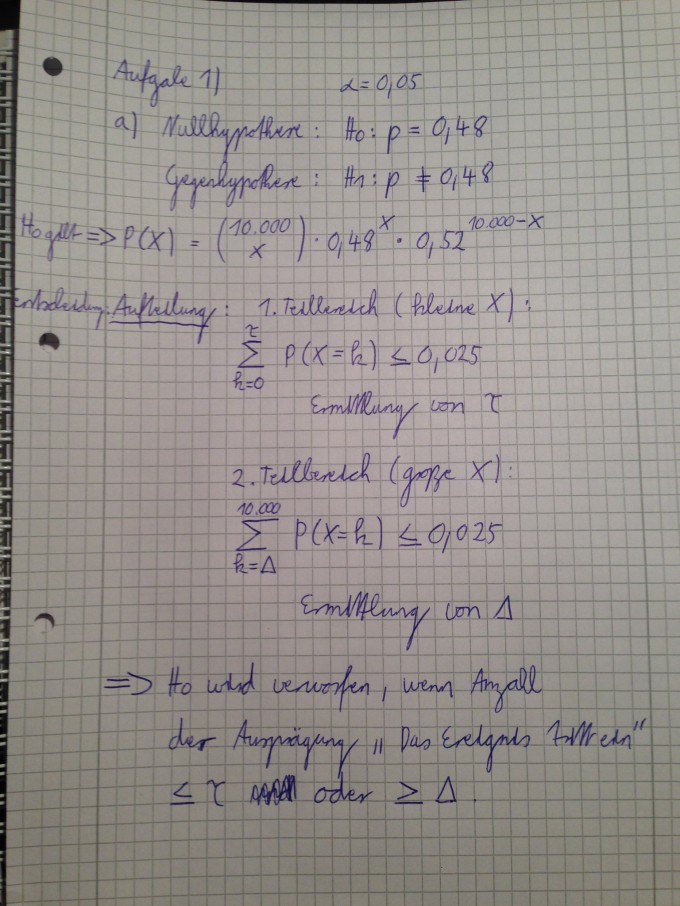 Aufgabe 1) α = 0,05
a) Nullhypothese : H₀ : p = 0,48
Gegenhypothese : H₁ : p ≠ 0,48
H₀ gilt => P(X) = (10.000 über X) · 0,48^X · 0,52^(10.000-X)
Aufteilung : 1. Teilbereich (kleine X) :
τ
∑ P(X=k) ≤ 0,025
k=0
Ermittlung von τ
2. Teilbereich (große X) :
10.000
∑ P(X=k) ≤ 0,025
k=Δ
Ermittlung von Δ
=> H₀ wird verworfen, wenn Anzahl
der Ausprägung „Das Ereignis tritt ein"
≤ τ oder ≥ Δ.